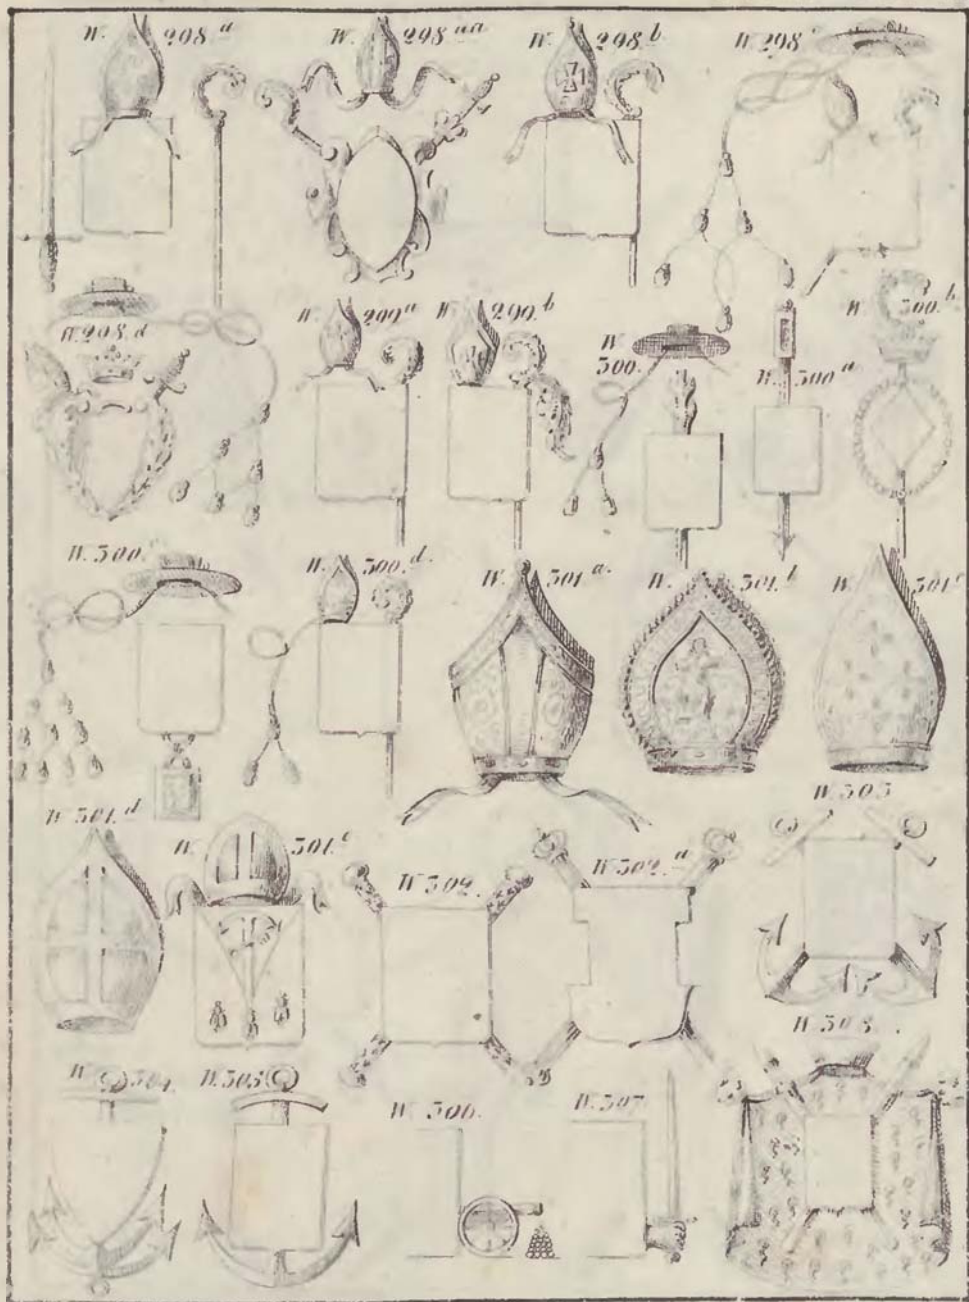 W. 298 a
W. 298 aa
W. 298 b
W 298
W. 298. d
W. 299 a
W. 299. b
W 300.
W. 300 a
W. 300. b
W. 300.
W. 300. d.
W. 301 a.
W. 301. b
W. 301 c
W 301. d
W. 301. e
W 302.
W 302. a
W 303
W. 304.
W. 305
W. 306.
W. 307
W. 308